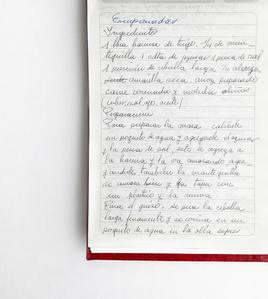 Empanadas
Ingredientes
1 libra harina de trigo, 1/4 de man
tequilla 1 cdta de azucar 1 pizca de sal
1 de cebolla larga 1/2
amarilla seca, arroz preparado
carne cocinada y molida aliños
(
Preparacion
Para preparar la masa caliente
un poquito de agua y agreguele el azucar
y la pizca de sal, esto se agrega a
la harina y la va amasando agre
gandole tambien la mantequilla
se amasa bien y la tapa con
un plastico y la reserva
Para el guiso, se pica la cebolla
larga finamente y se cocina en un
poquito de agua en la olla